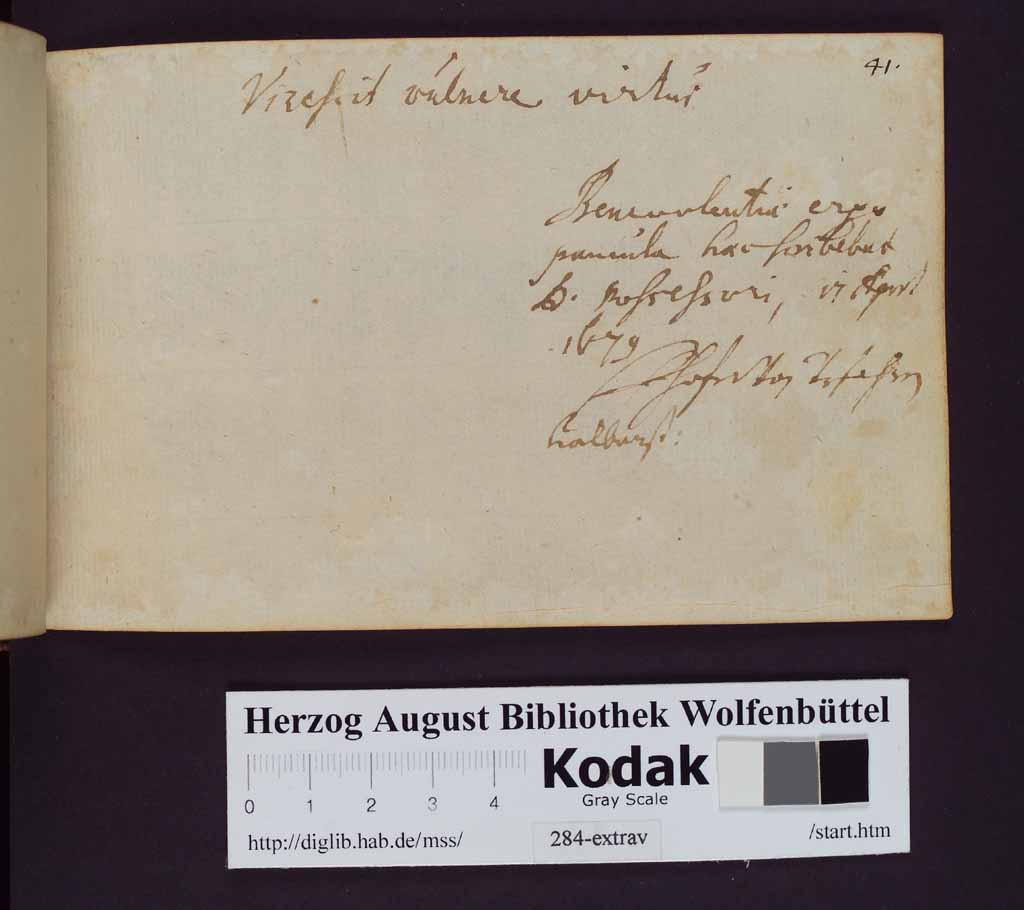 41.
Virescit vulnere virtus
Benevolentiæ ergo
paucula hæc scribebat
D. possessori, 17 Apr
1679
halberst:
Herzog August Bibliothek Wolfenbüttel
Kodak
Gray Scale
0 1 2 3 4
http://diglib.hab.de/mss/ 284-extrav /start.htm